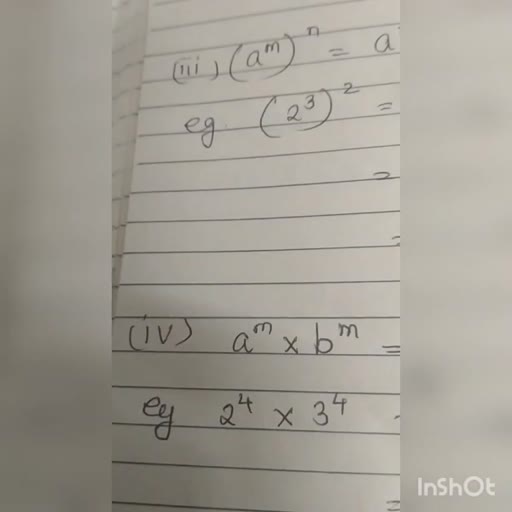 (iii) (aᵐ)ⁿ = a
eg. (2³)² =
=
=
(iv) aᵐ × bᵐ =
eg 2⁴ × 3⁴
=
InShOt